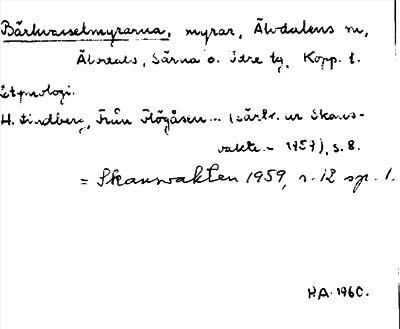 Bärkvasselmyrarna, myrar, Älvdalens sn,
Älvdals, Särna o. Idre tg, Kopp. l.
Etymologi.
H. Lindberg, Från Högåsen... (särtr. ur Skans-
vakte.- 1957), s. 8.
= Skansvakten 1959, s. 12 sp. 1.
HA. 1960.